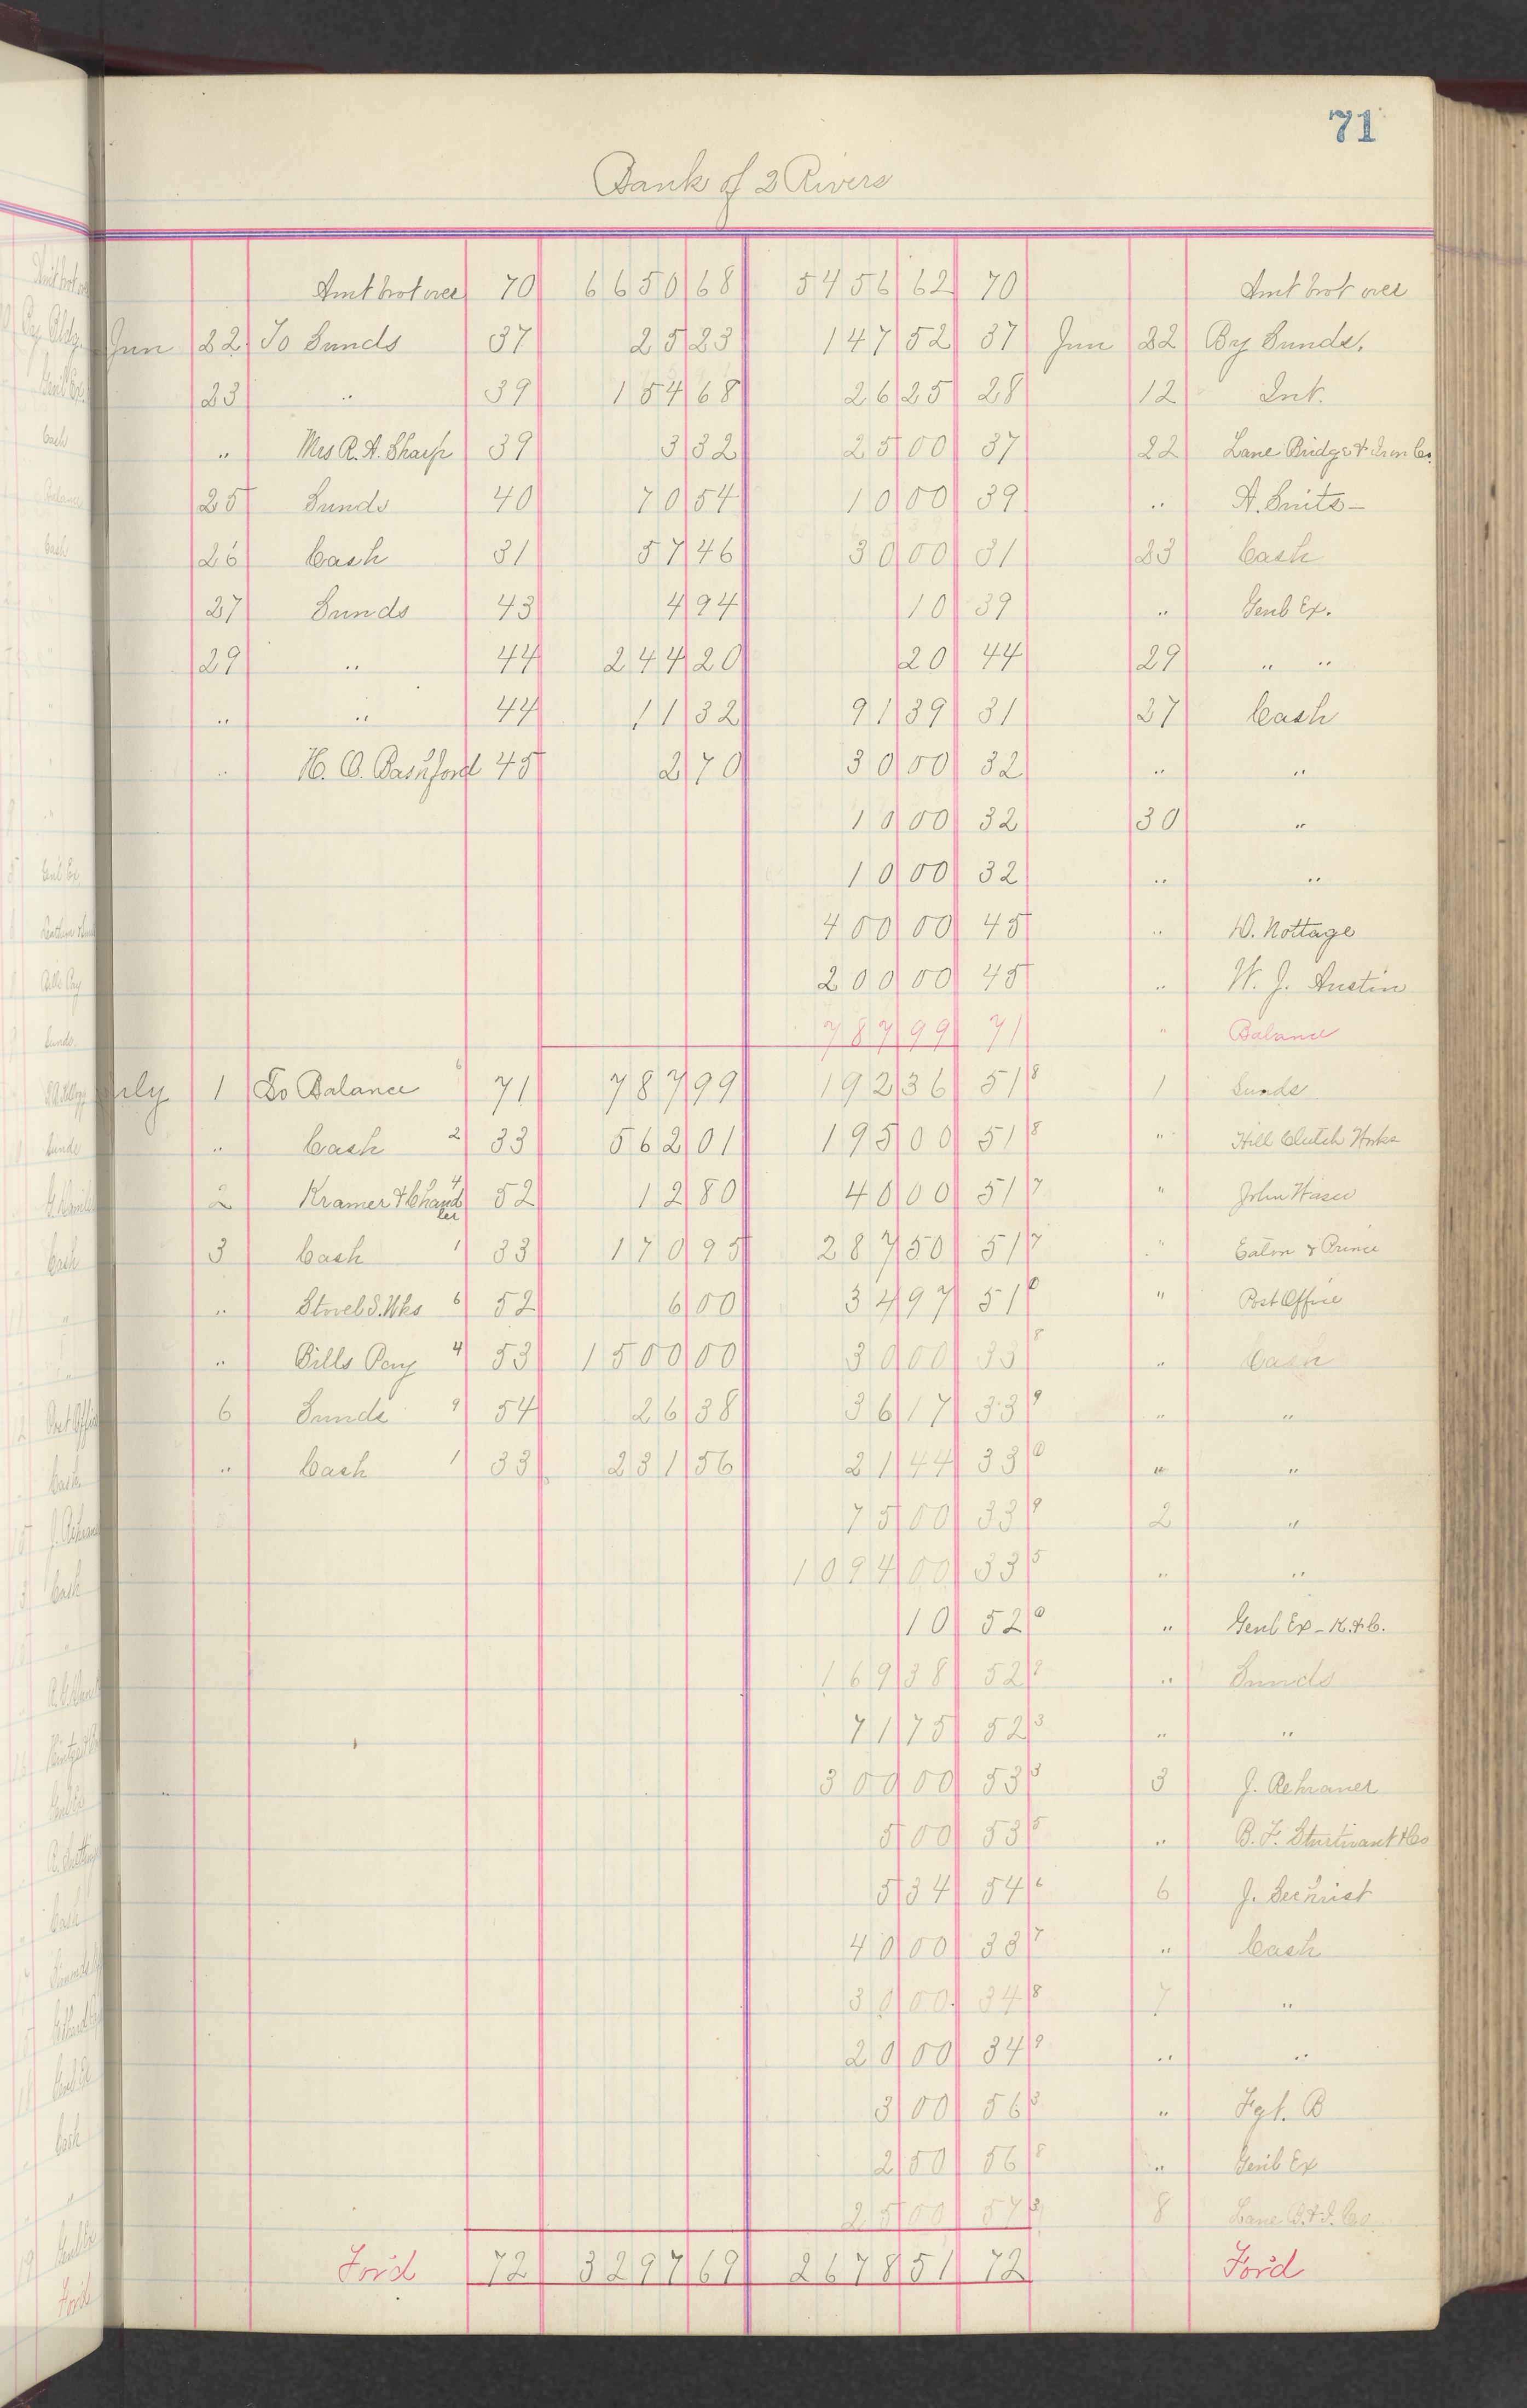 71
Bank of 2 Rivers
Amt brot over 70 6650 68 5456 62 70 Amt brot over
Jun 22 To Sunds 37 25 23 147 52 37 Jun 22 By Sunds.
23 " 39 154 68 26 25 28 12 Int.
" Mrs R. A. Sharp 39 3 32 25 00 37 22 Lane Bridge & Iron Co.
25 Sunds 40 70 54 10 00 39 " A. Smits -
26 Cash 31 57 46 30 00 31 23 Cash
27 Sunds 43 4 94 10 39 " Genl Ex.
29 " 44 244 20 20 44 29 " "
" " 44 11 32 91 39 31 27 Cash
" H. O. Bashford 45 2 70 30 00 32 " "
10 00 32 30 "
10 00 32 " "
400 00 45 " D. Nottage
200 00 45 " W. J. Austin
787 99 71 " Balance
July 1 To Balance 6 71 787 99 192 36 51 8 1 Sunds
" Cash 2 33 562 01 195 00 51 8 " Hill Clutch Works
2 Kramer & Chand 4 52 12 80 40 00 51 7 " John
ler
3 Cash 1 33 170 95 287 50 51 7 " Eaton & Prince
" S. Wks 6 52 6 00 34 97 51 0 " Post Office
" Bills Pay 4 53 1500 00 30 00 33 8 " Cash
6 Sunds 9 54 26 38 36 17 33 9 " "
" Cash 1 33 231 56 21 44 33 0 " "
75 00 33 9 2 "
1094 00 33 5 " "
10 52 0 " Genl Ex - K. & C.
169 38 52 9 " Sunds
71 75 52 3 " "
300 00 53 3 3 J.
5 00 53 5 " B. F. Sturtivant & Co
5 34 54 6 6 J. Sechrist
40 00 33 7 " Cash
30 00 34 8 7 "
20 00 34 9 " "
3 00 56 3 " Fgt. B
2 50 56 8 " Genl Ex
25 00 57 3 8 Lane B. & I. Co.
For'd 72 3297 69 2678 51 72 For'd